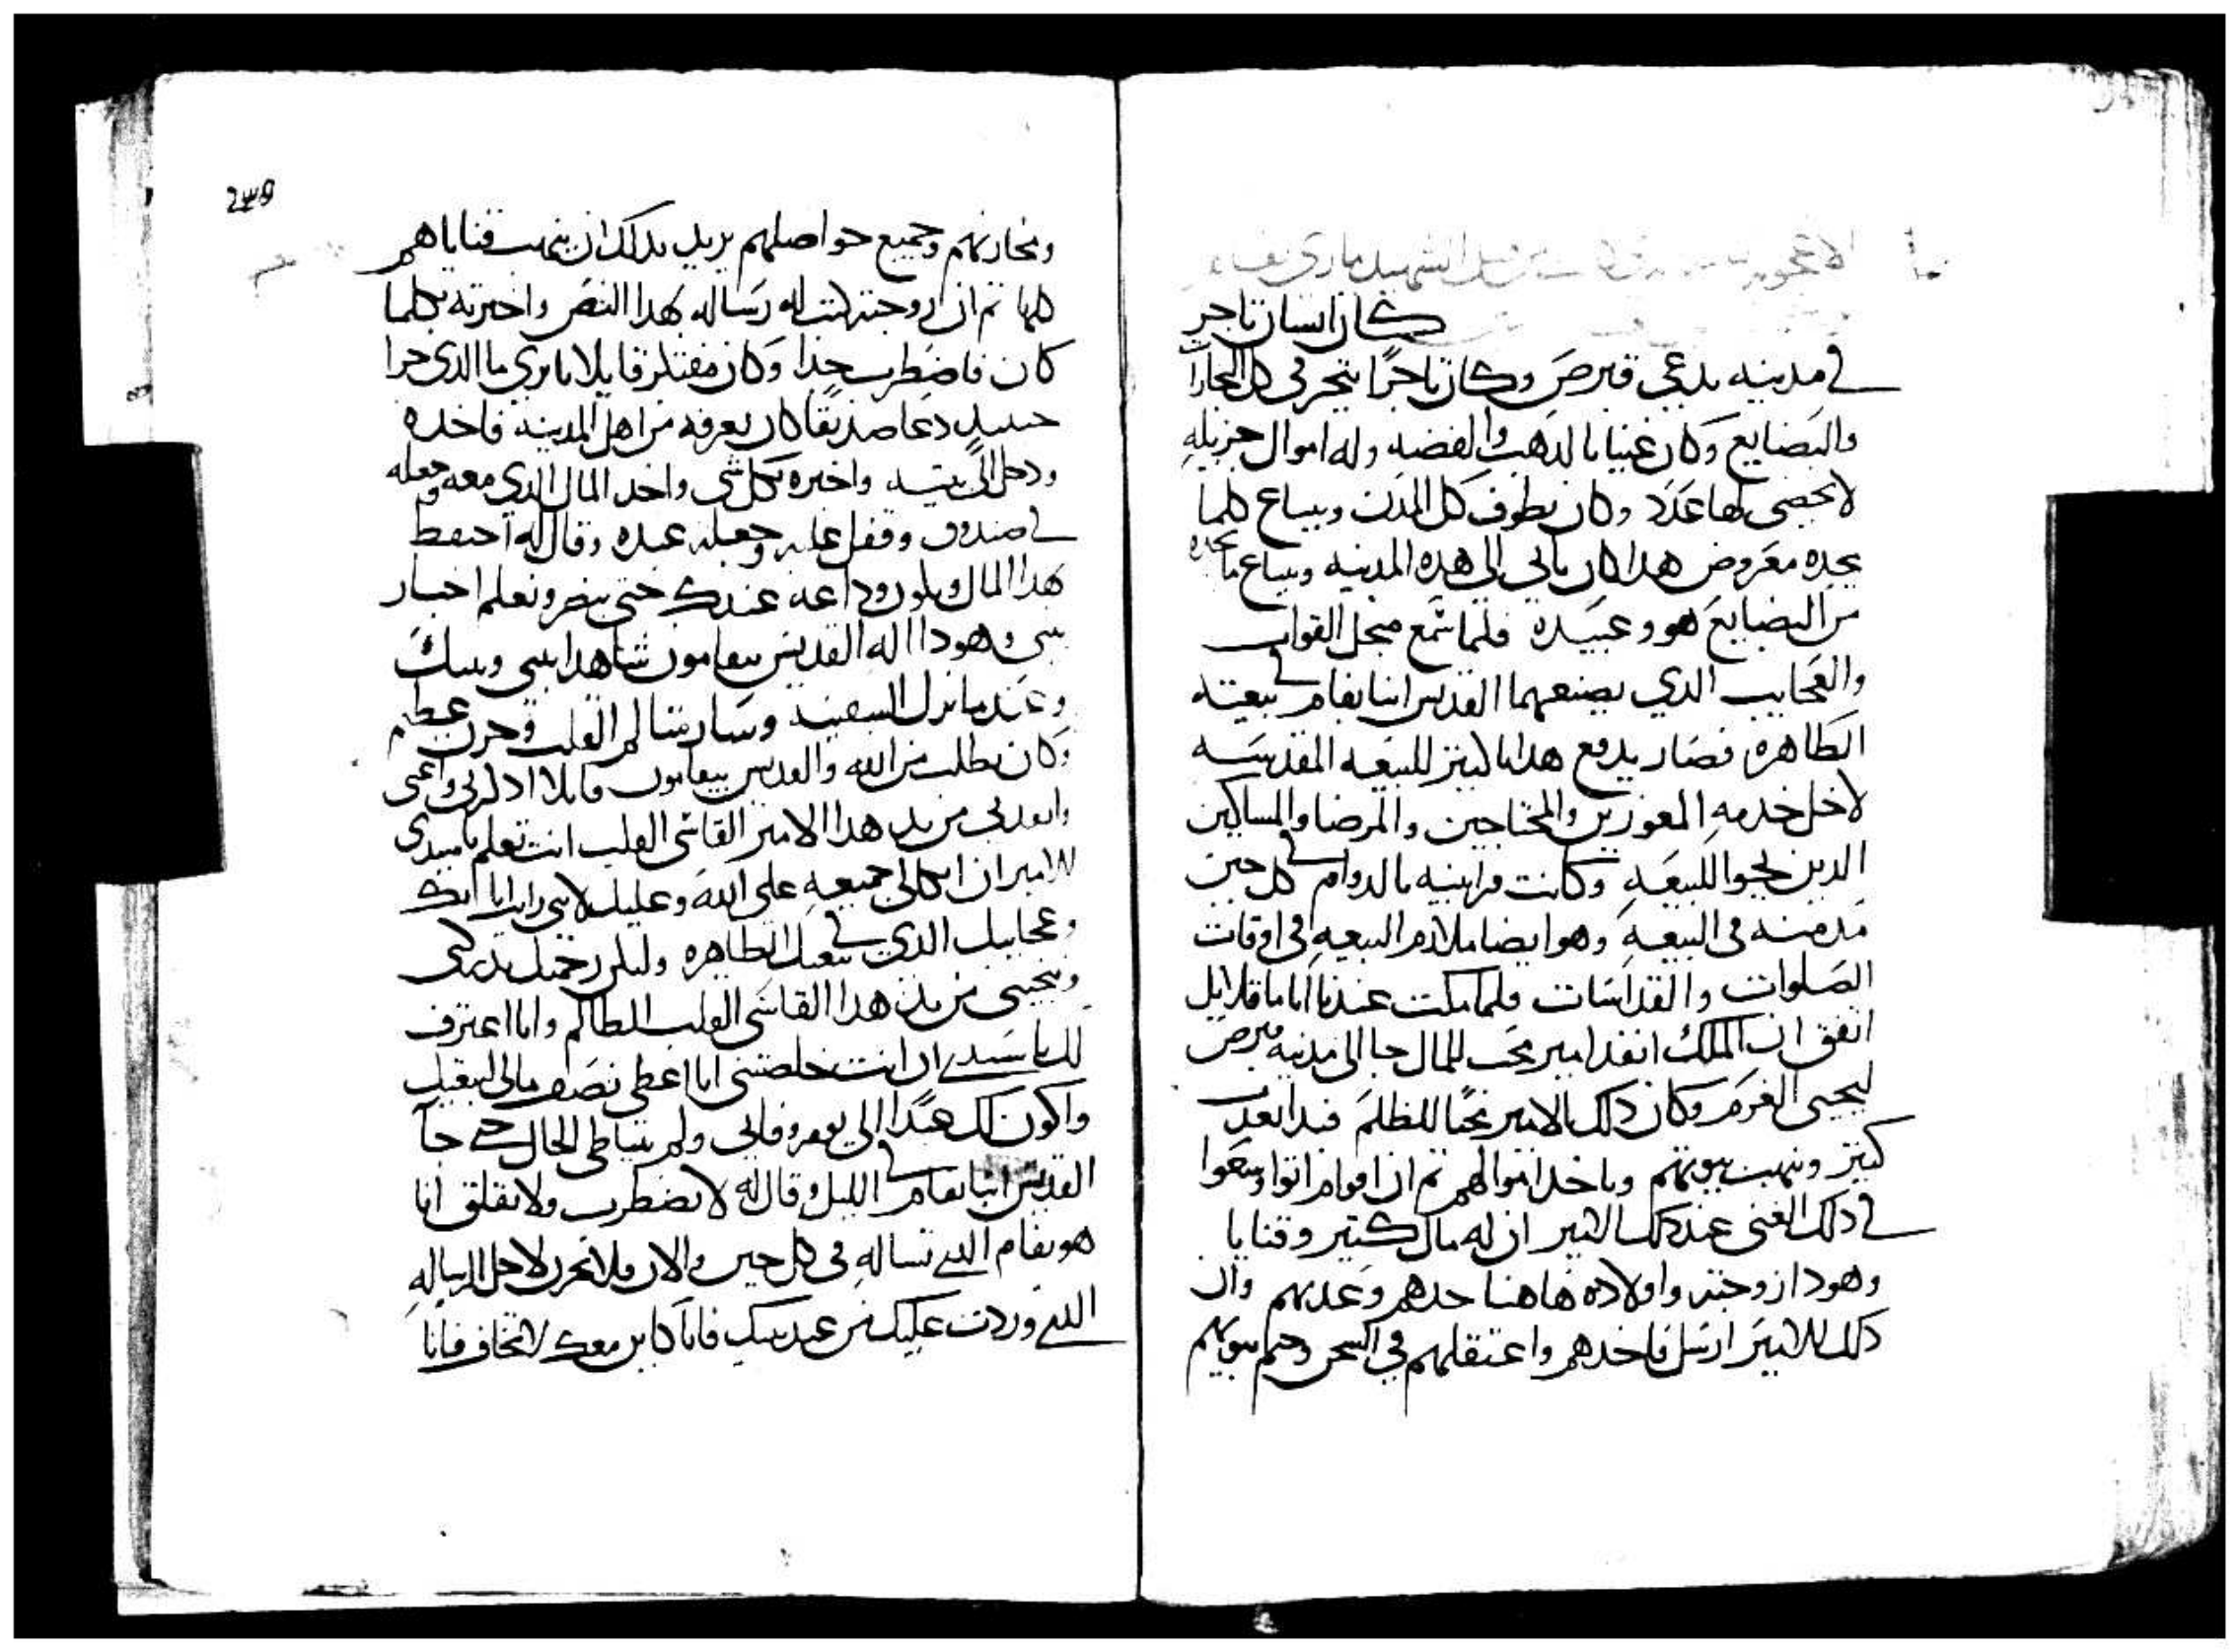 الاعجوبه الشهيد ماري بفام
كان انسان تاجر
في مدينه يدعي قبرص وكان تاجرًا يتجر في كل التجارا
والبضايع وكان غنيا بالدهب والفضه وله اموال جزيله
لا يحصى لها عدد وكان يطوف كل المدن ويبتاع كلما
يجده معروض هدا كان ياتي الي هده المدينه ويبتاع ما يجده
من البضايع هو وعبيده فلما سمع مجل القوات
والعجايب الدي يصنعهما القديس انبا بفام في بيعته
الطاهره فصار يدفع هدايا كتيره للبيعه المقدسه
لاجل خدمه المعوزين والمحتاجين والمرضا والمساكين
الدين يلجوا للبيعه وكانت قرابينه بالدوام في كل حين
مدمنه في البيعه وهو ايضا ملازم البيعه في اوقات
الصلوات والقداسات فلما مكت عندنا اياما قلايل
اتفق ان الملك انفد امير محب للمال جا الي مدينه قبرص
ليجبي الغرم وكان دلك الامير محبًا للظلم فبدا يعدب
كتير وينهب بيوتهم وياخد اموالهم تم ان اقوام اتوا وسعوا
في دلك الغني عند دلك الامير ان له مال كتير وقنايا
وهودا زوجته واولاده هاهنا خدهم وعدبهم وان
دلك الامير ارسل فاخدهم واعتقلهم في السجن وختم بيوتهم
239
ومخازنهم وجميع حواصلهم يريد بدلك ان ينهب قناياهم
كلها تم ان زوجته كتبت له رساله بهدا النص واخبرته بكلما
كان فاضطرب جدا وكان مفتكر قايلا يا تري ما الدي جرا
حينيد دعا صديقا كان يعرفه من اهل المدينه فاخده
ودخل الي بيته واخبره بكل شي واخد المال الدي معه وجعله
في صندوق وقفل عليه وجعله عنده وقال له احتفظ
هدا المال ويكون وداعه عندك حتى ننضر ونعلم اخبار
بيتي وهودا اله القديس بيفامون شاهدا بيني وبينك
وعندما نزل السفينه وسار متالم القلب وحزن عظيم
وكان يطلب من الله والقديس بيفامون قايلا ادكرني واعني
وانقدني من يد هدا الامير القاسي القلب انت تعلم يا سيدي
الامير ان اتكالي جميعه علي الله وعليك لاني رايت اياتك
وعجايبك الدي في بيعتك الطاهره ولتكن رحمتك تدركني
وينجيني من يد هدا القاسي القلب الظالم وانا اعترف
لك يا سيدي ان انت خلصتني انا اعطي نصف مالي لبيعتك
واكون لك عبدًا الي يوم وفاتي ولم يتباطي للحال حتي جا
القديس انبا بفام في الليل وقال له لا تضطرب ولا تقلق انا
هو بفام الدي تساله في كل حين والان فلا تحزن لاجل الرساله
الدي وردت عليك من عند بيتك فانا كاين معك لا تخاف فانا